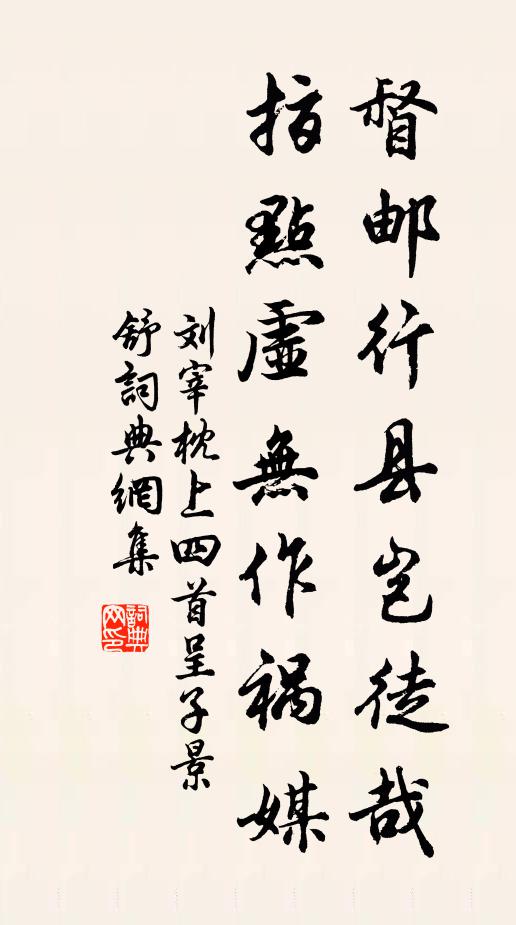 督邮行县岂徒哉
指點虛無作祸媒
刘宰枕上四首呈子景
舒詞典網集
詞典網印